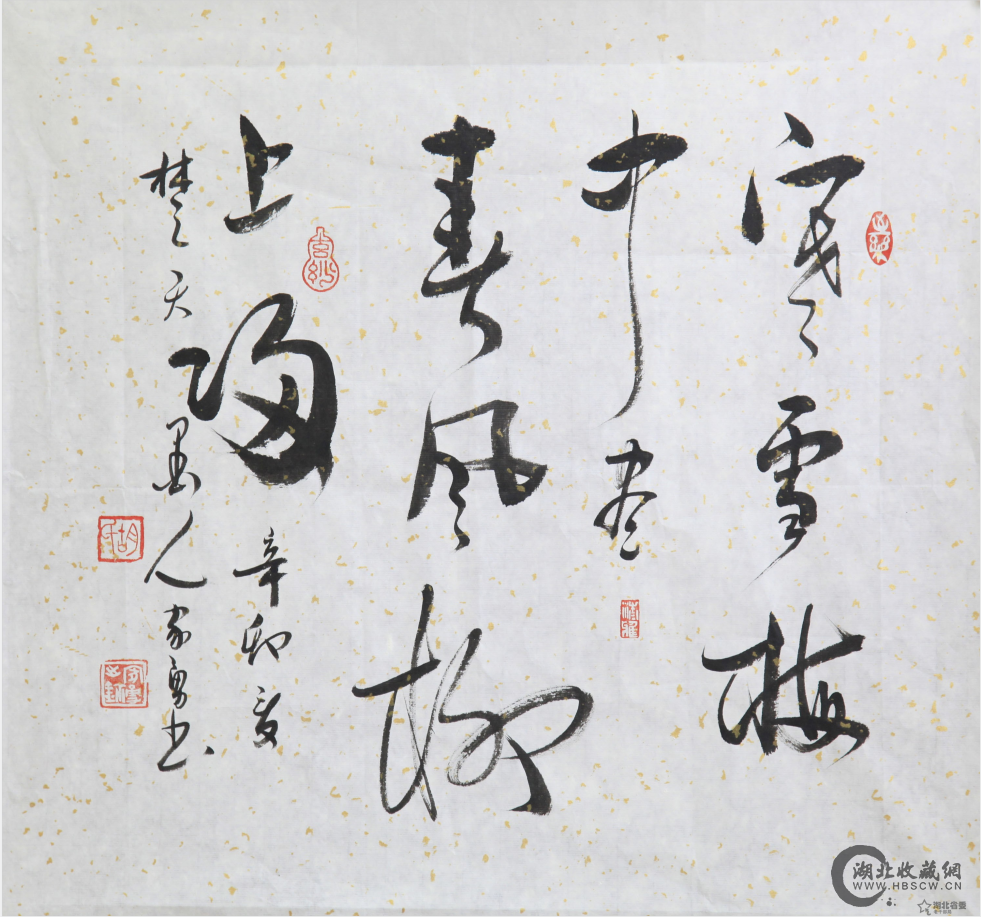 寒雪梅
中尽
春风柳
上归 辛卯夏
楚天墨人家勇书
胡氏
湖北收藏網
WWW.HBSCW.CN